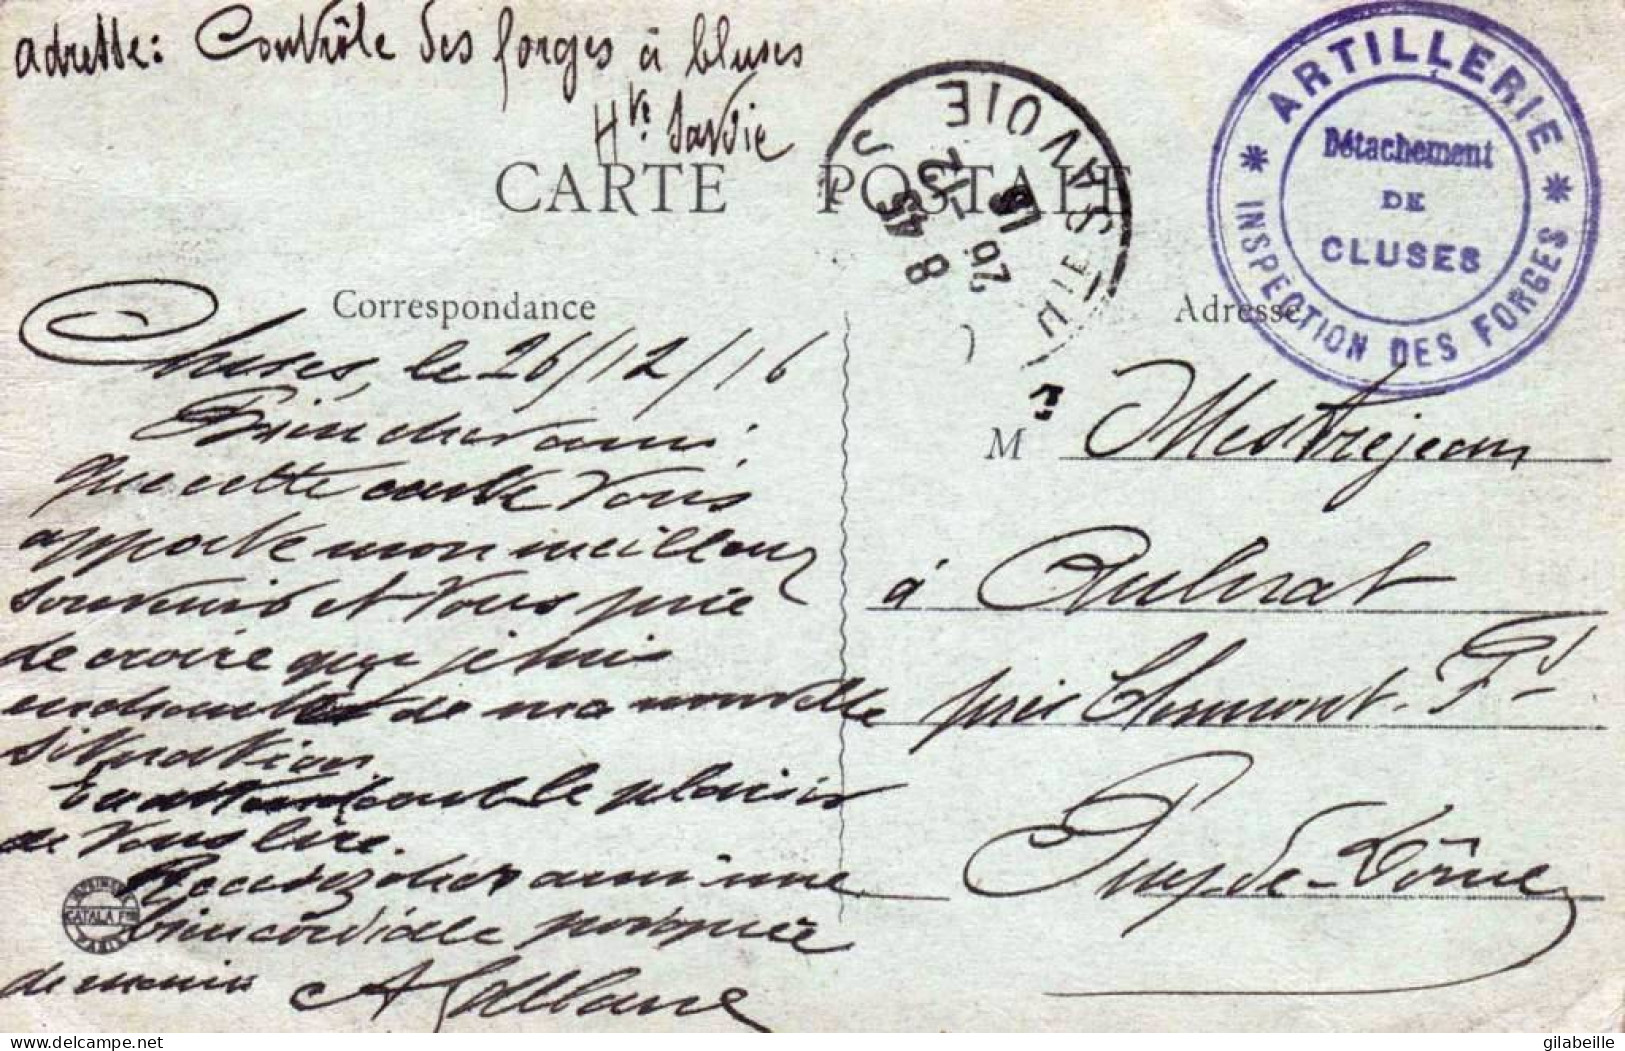 adresse: Contrôle des forges à Cluses
Hte Savoie
CARTE POSTALE
ARTILLERIE
Détachement
DE
CLUSES
INSPECTION DES FORGES
SAVOIE
8 45
26 -12
16
Correspondance
Adresse
Cluses, le 26/12/16
Bien cher ami,
que cette carte vous
apporte mon meilleur
souvenir et vous prie
de croire que je suis
enchanté de ma nouvelle
situation.
le plaisir
de vous lire.
Recevez cher ami une
bien cordialle poignée
de main
M Mestrejean
à Aulnat
près Clermont-Fd
Puy-de-Dôme
IMPRIMERIE
CATALA Fres
PARIS
delcampe.net
gilabeille